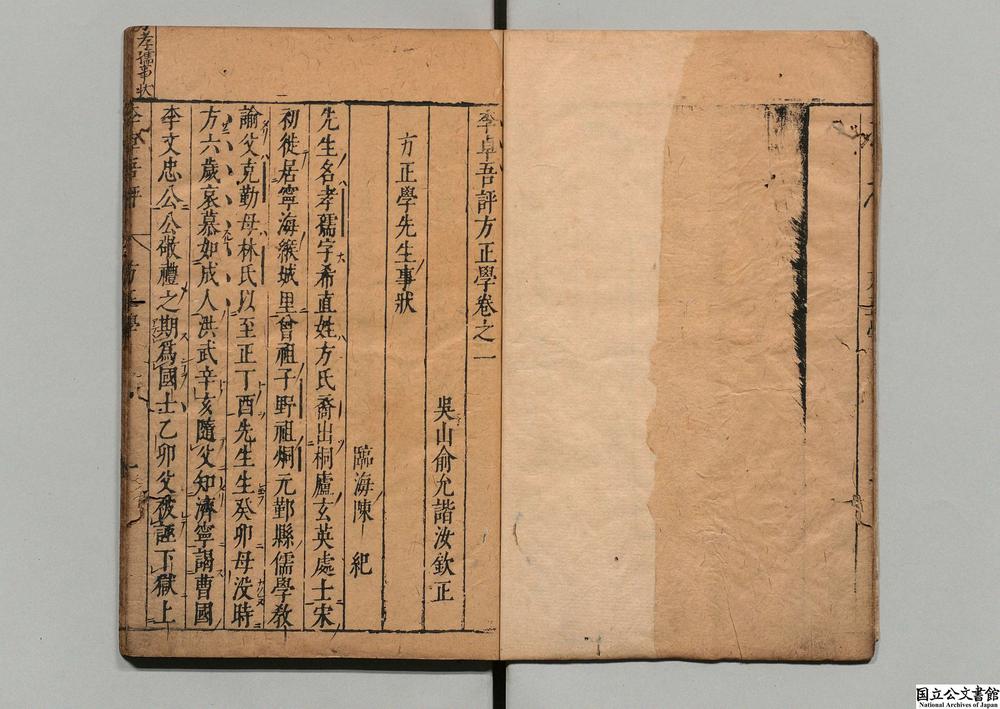 李卓吾評方正學卷之一
吳山俞允諧汝欽正
方正學先生事狀
臨海陳 紀
先生名孝孺字希直姓方氏裔出桐廬玄英處士宋
初徙居寧海緱城里曾祖子野祖炯元鄞縣儒學教
諭父克勤母林氏以至正丁酉先生生癸卯母没時
方六歲哀慕如成人洪武辛亥隨父知濟寧謁曹國
李文忠公公敬禮之期爲國士乙卯父被誣下獄上
方孝孺事狀
國立公文書館
National Archives of Japan